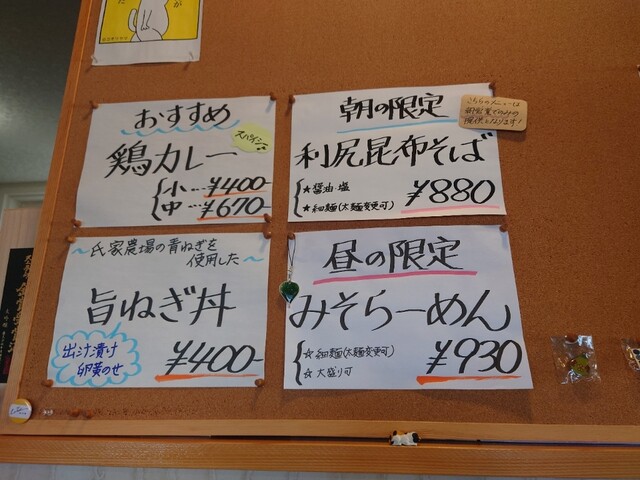 おすすめ
スパイシー
鶏カレー
小…¥400-
中…¥670-
朝の限定
こちらのメニューは
朝営業でのみの
提供となります!
利尻昆布そば
★醤油・塩
★細麺(太麺変更可)
¥880
～氏家農場の青ねぎを
使用した～
旨ねぎ丼
出汁漬け
卵黄のせ
¥400-
昼の限定
みそらーめん
☆細麺(太麺変更可)
☆大盛り可
¥930